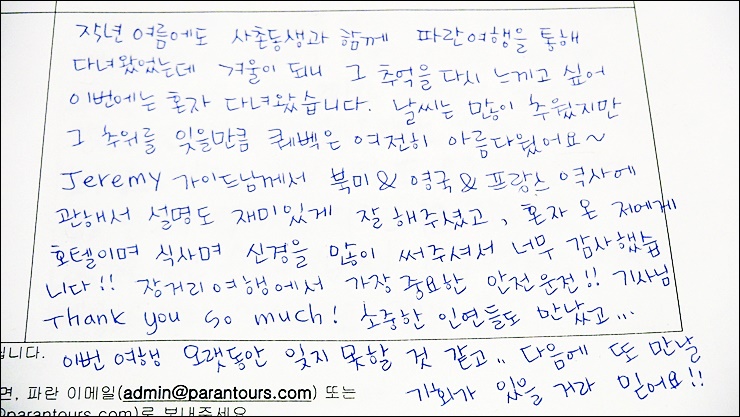 작년 여름에도 사촌동생과 함께 파란여행을 통해
다녀왔었는데 겨울이 되니 그 추억을 다시 느끼고 싶어
이번에는 혼자 다녀왔습니다. 날씨는 많이 추웠지만
그 추위를 잊을만큼 퀘벡은 여전히 아름다웠어요~
Jeremy 가이드님께서 북미 & 영국 & 프랑스 역사에
관해서 설명도 재미있게 잘 해주셨고, 혼자 온 저에게
호텔이며 식사며 신경을 많이 써주셔서 너무 감사했습
니다!! 장거리여행에서 가장 중요한 안전운전!! 기사님
Thank you so much! 소중한 인연들도 만났고...
이번 여행 오랫동안 잊지 못할 것 같고.. 다음에 또 만날
기회가 있을 거라 믿어요!!
니다.
면, 파란 이메일(admin@parantours.com) 또는
parantours.com)로 보내주세요